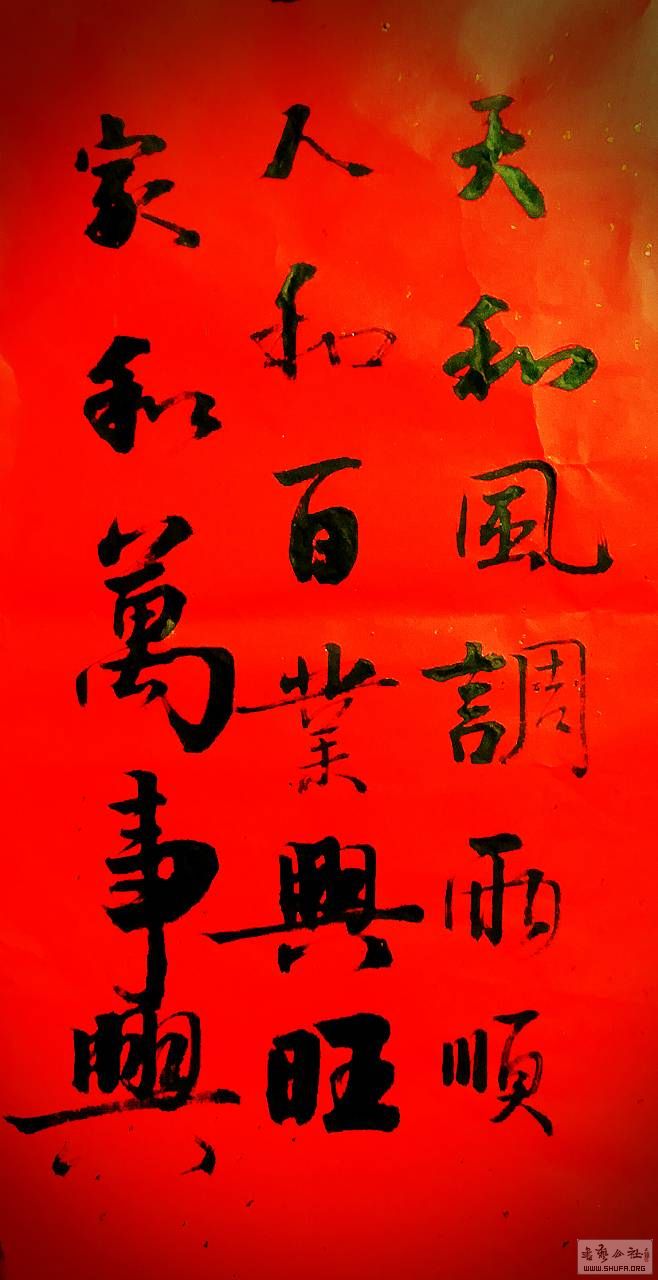 天和風調雨順
人和百業興旺
家和萬事興
书艺公社
WWW.SHUFA.ORG